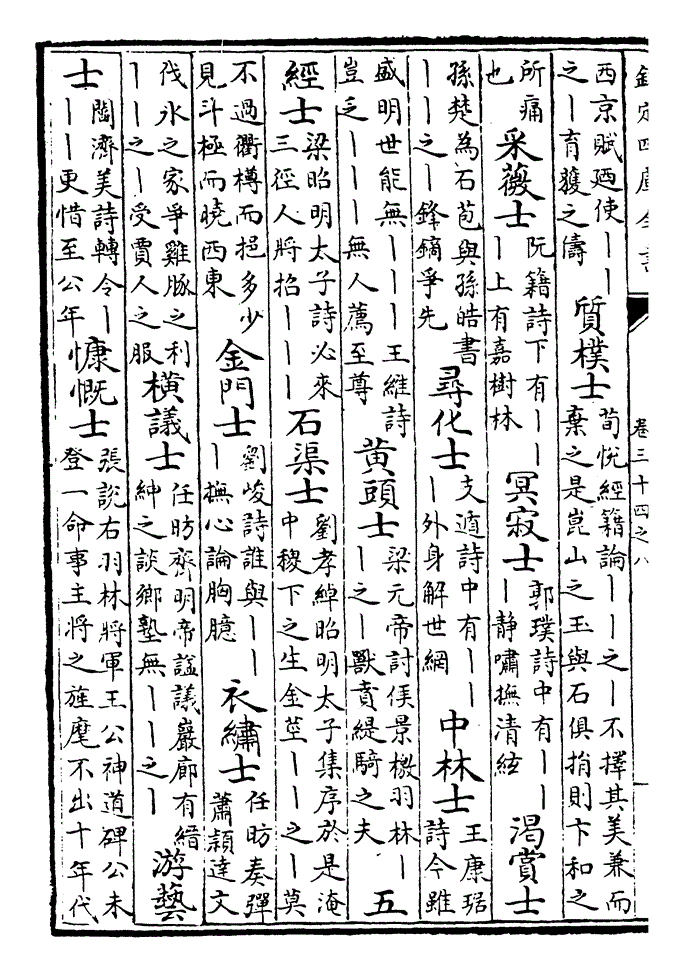 欽定四庫全書
卷三十四之八
西京賦廼使丨丨
之丨育獲之儔
質樸士
荀悅經籍論丨丨之丨不擇其美兼而
棄之是崑山之玉與石俱捐則卞和之
所痛
也
采薇士
阮籍詩下有丨丨
丨上有嘉樹林
冥寂士
郭璞詩中有丨丨
丨静嘯撫清絃
渴賞士
孫楚為石苞與孫皓書
丨丨之丨鋒鏑爭先
尋化士
支遁詩中有丨丨
丨外身解世網
中林士
王康琚
詩今雖
盛明世能無丨丨丨王維詩
豈乏丨丨丨無人薦至尊
黄頭士
梁元帝討侯景檄羽林丨
丨之丨獸賁緹騎之夫
五
經士
梁昭明太子詩必來
三徑人將招丨丨丨
石渠士
劉孝綽昭明太子集序於是淹
中稷下之生金莖丨丨之丨莫
不過衢樽而挹多少
見斗極而曉西東
金門士
劉峻詩誰與丨丨
丨撫心論胸臆
衣繡士
任昉奏彈
蕭穎達文
伐氷之家爭雞豚之利
丨丨之丨受賈人之服
橫議士
任昉齊明帝諡議巖廊有縉
紳之談鄉塾無丨丨之丨
游藝
士
閻濟美詩轉令丨
丨丨更惜至公年
慷慨士
張說右羽林將軍王公神道碑公未
登一命事主將之旌麾不出十年代